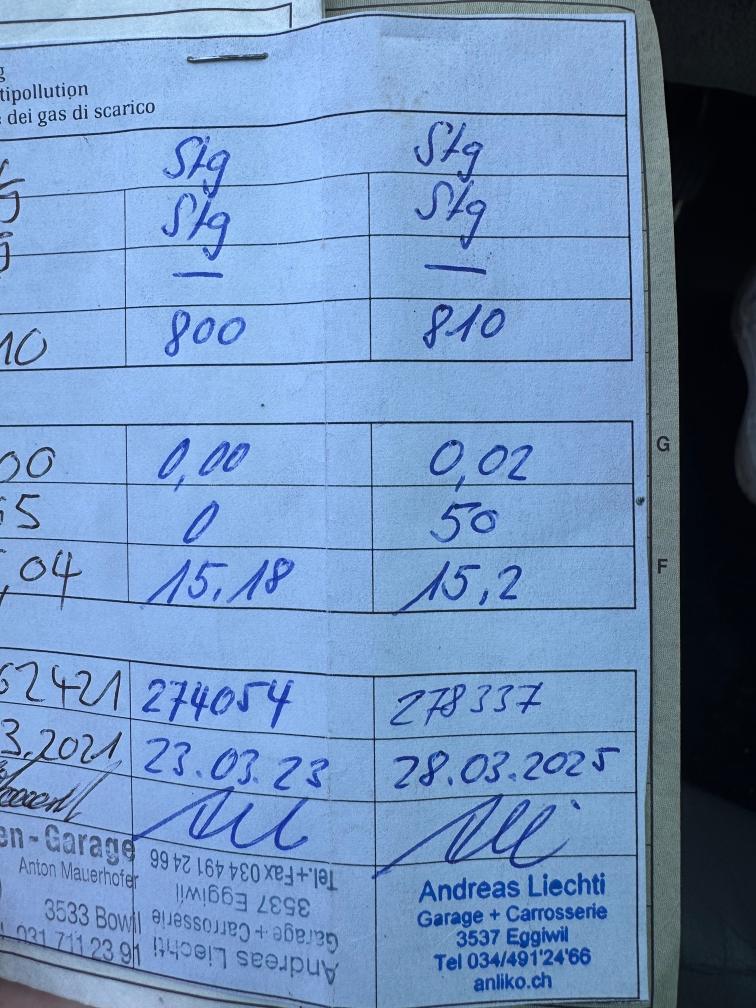 g
tipollution
dei gas di scarico
Stg Stg
g Stg Stg
g — —
10 800 810
G
00 0,00 0,02
65 0 50
F
,04 15.18 15,2
62421 274054 278337
3.2021 23.03.23 28.03.2025
en-Garage
Anton Mauerhofer
3533 Bowil
031 711 23 91
Andreas Liechti
Garage + Carrosserie
3537 Eggiwil
Tel.+Fax 034 491 24 66
Andreas Liechti
Garage + Carrosserie
3537 Eggiwil
Tel 034/491'24'66
anliko.ch